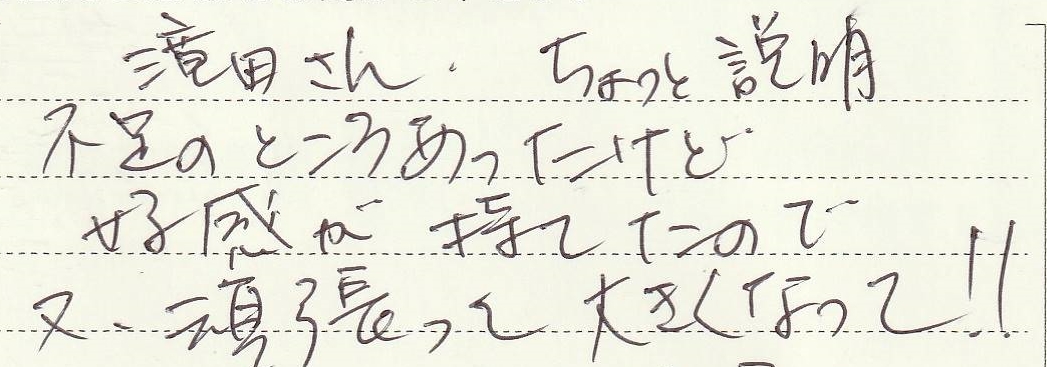 滝田さん. ちょっと説明
不足のところあったけど
好感が持てたので
又、頑張って大きくなって!!